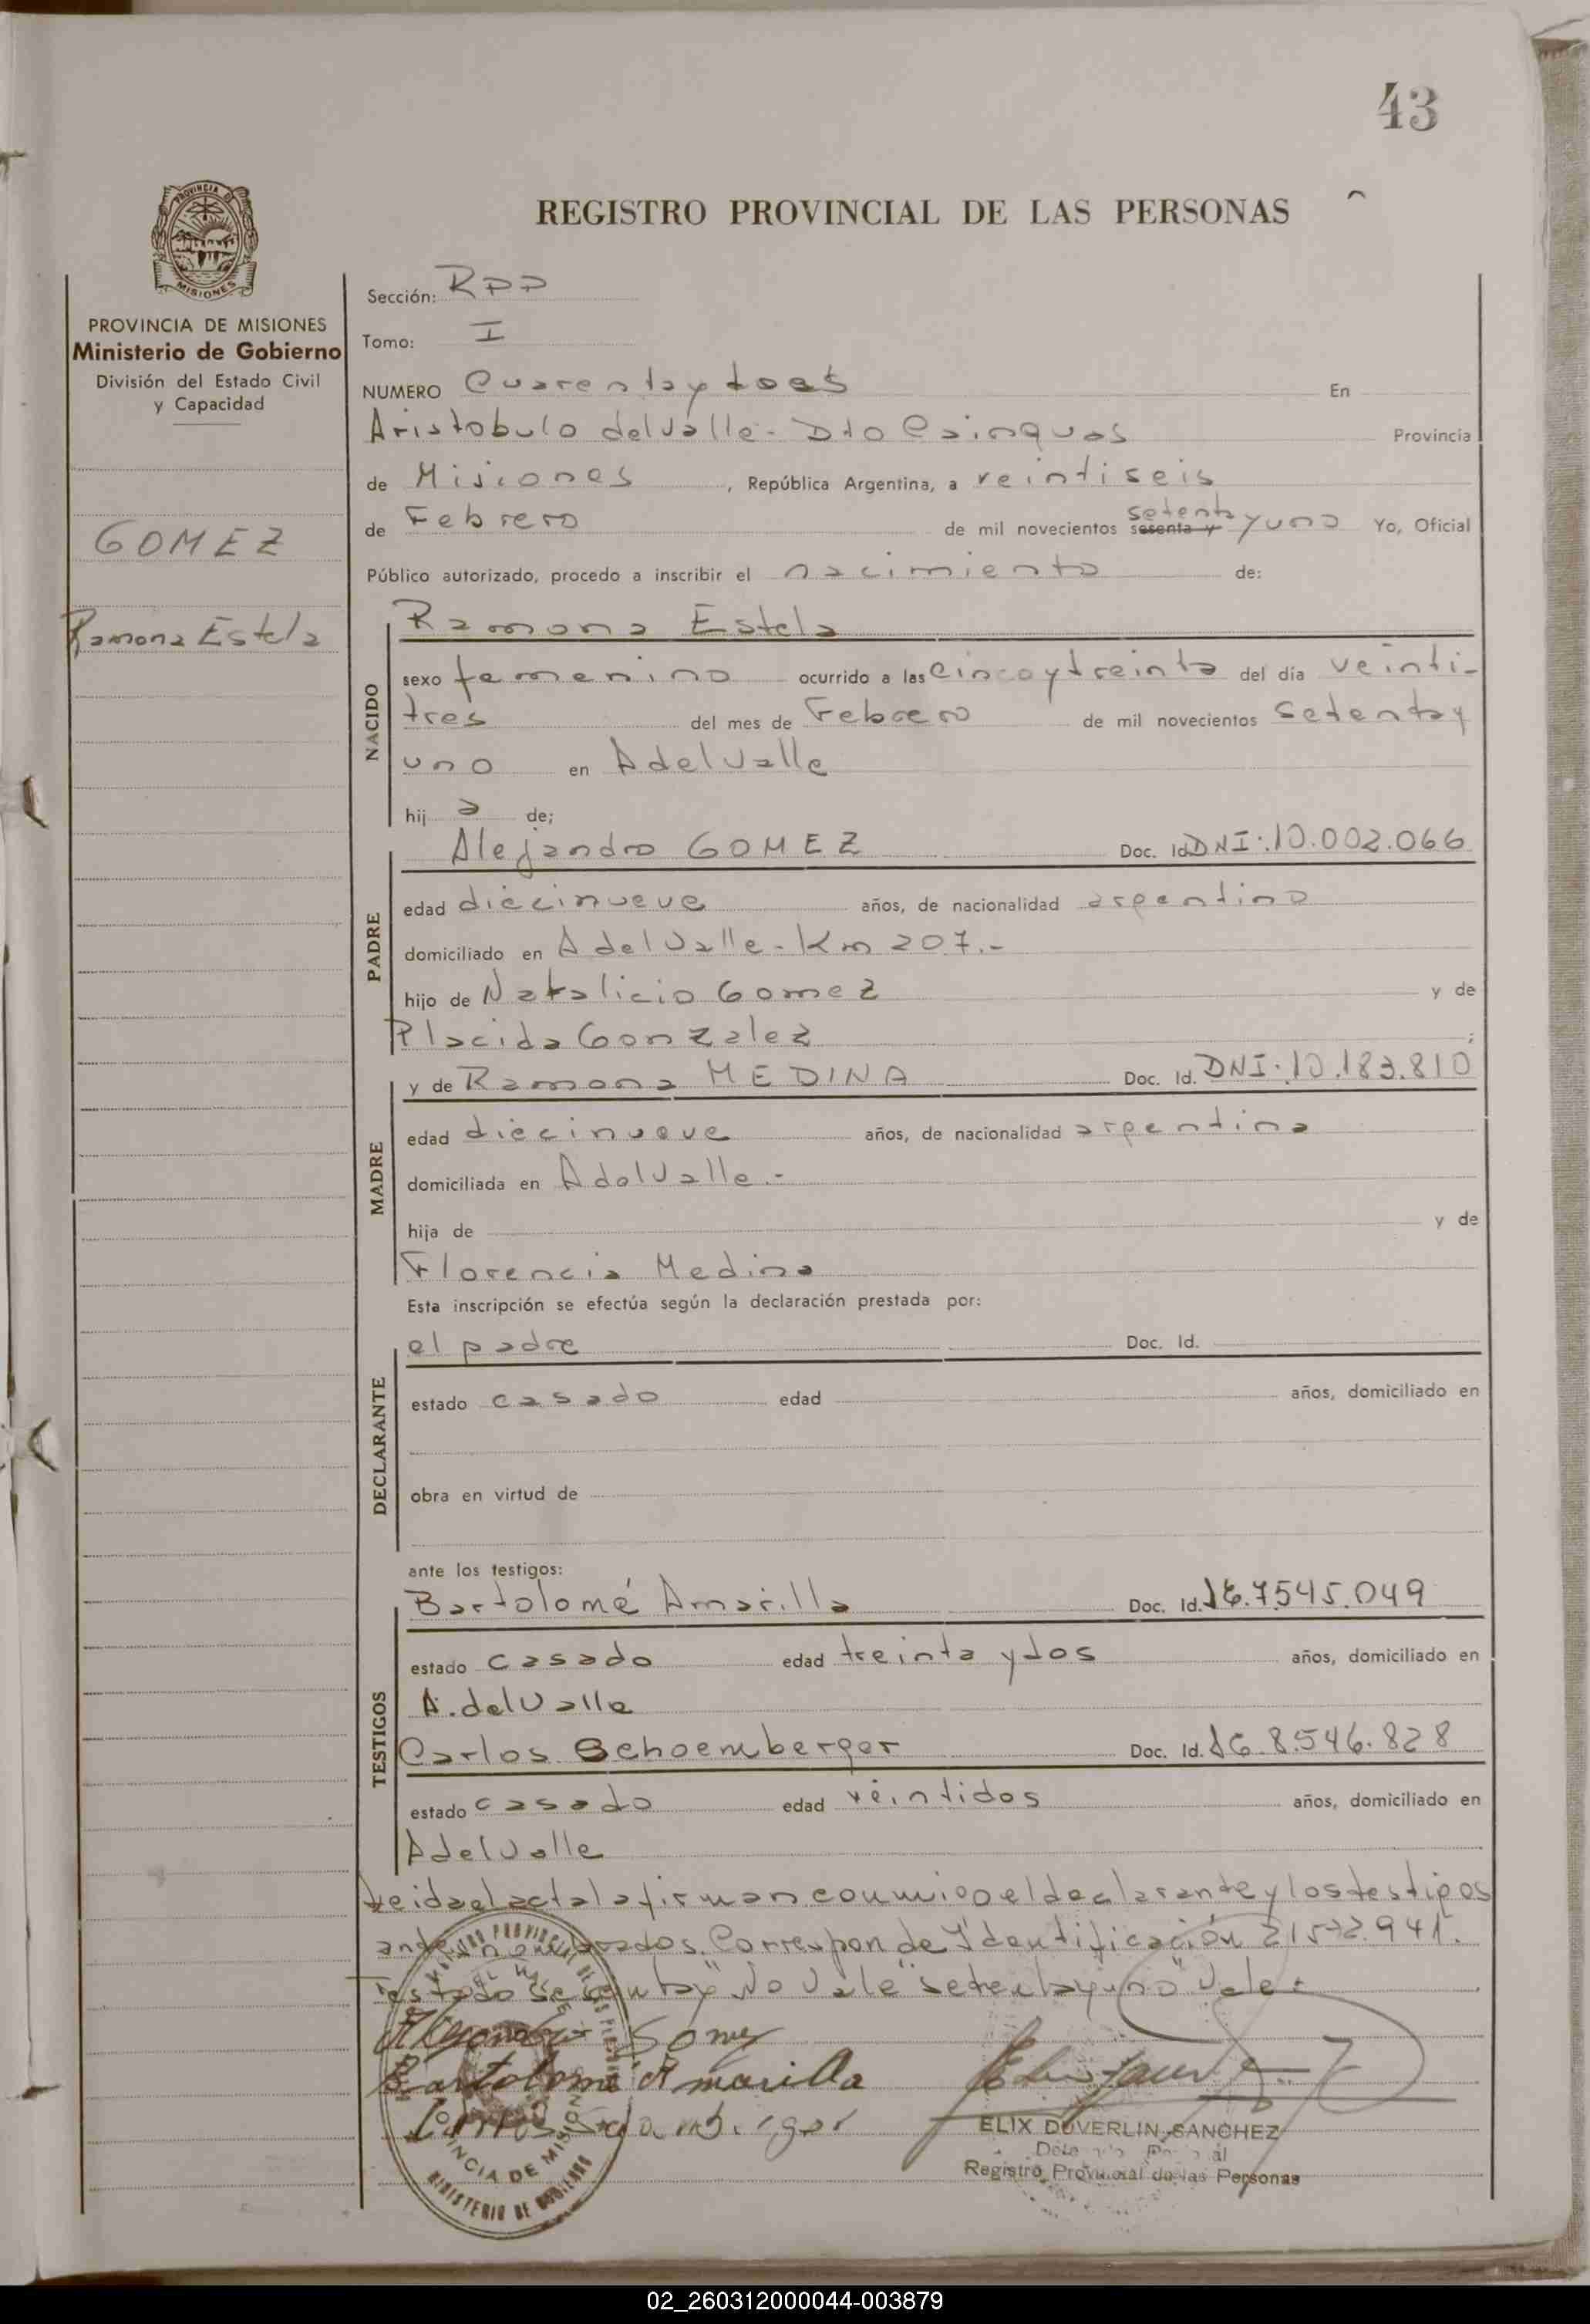 43
REGISTRO PROVINCIAL DE LAS PERSONAS
PROVINCIA DE MISIONES
Ministerio de Gobierno
División del Estado Civil
y Capacidad
GOMEZ
Ramona Estela
Sección: RPP
Tomo: I
NUMERO Cuarenta y tres En
Aristobulo del Valle - Dto Cainguas Provincia
de Misiones, República Argentina, a veintiseis
de Febrero de mil novecientos sesenta y setenta y uno Yo, Oficial
Público autorizado, procedo a inscribir el nacimiento de:
NACIDO
Ramona Estela
sexo femenino ocurrido a las cinco y treinta del día veinti-
tres del mes de Febrero de mil novecientos setenta y
uno en A del Valle
hij a de;
PADRE
Alejandro GOMEZ Doc. Id. DNI: 10.002.066
edad diecinueve años, de nacionalidad argentino
domiciliado en A del Valle - Km 207.-
hijo de Natalicio Gomez y de
Placida Gonzalez ;
MADRE
y de Ramona MEDINA Doc. Id. DNI: 10.183.810
edad diecinueve años, de nacionalidad argentina
domiciliada en A del Valle.-
hija de y de
Florencia Medina
Esta inscripción se efectúa según la declaración prestada por:
DECLARANTE
el padre Doc. Id.
estado casado edad años, domiciliado en
obra en virtud de
ante los testigos:
TESTIGOS
Bartolomé Amarilla Doc. Id. 7.545.049
estado casado edad treinta y dos años, domiciliado en
A. del Valle
Carlos Schoemberger Doc. Id. 8.546.828
estado casado edad veintidos años, domiciliado en
A del Valle
Leida el acta la firman conmigo el declarante y los testigos
antes nombrados. Corresponde Identificación 21572.941.
Testado "sesenta y" No Vale "setenta y uno" Vale.
Gomez
Bartolome Amarilla
Carlos
ELIX DUVERLIN SANCHEZ
Registro Provincial de las Personas
PROVINCIA DE MISIONES
MINISTERIO DE GOBIERNO
02_260312000044-003879